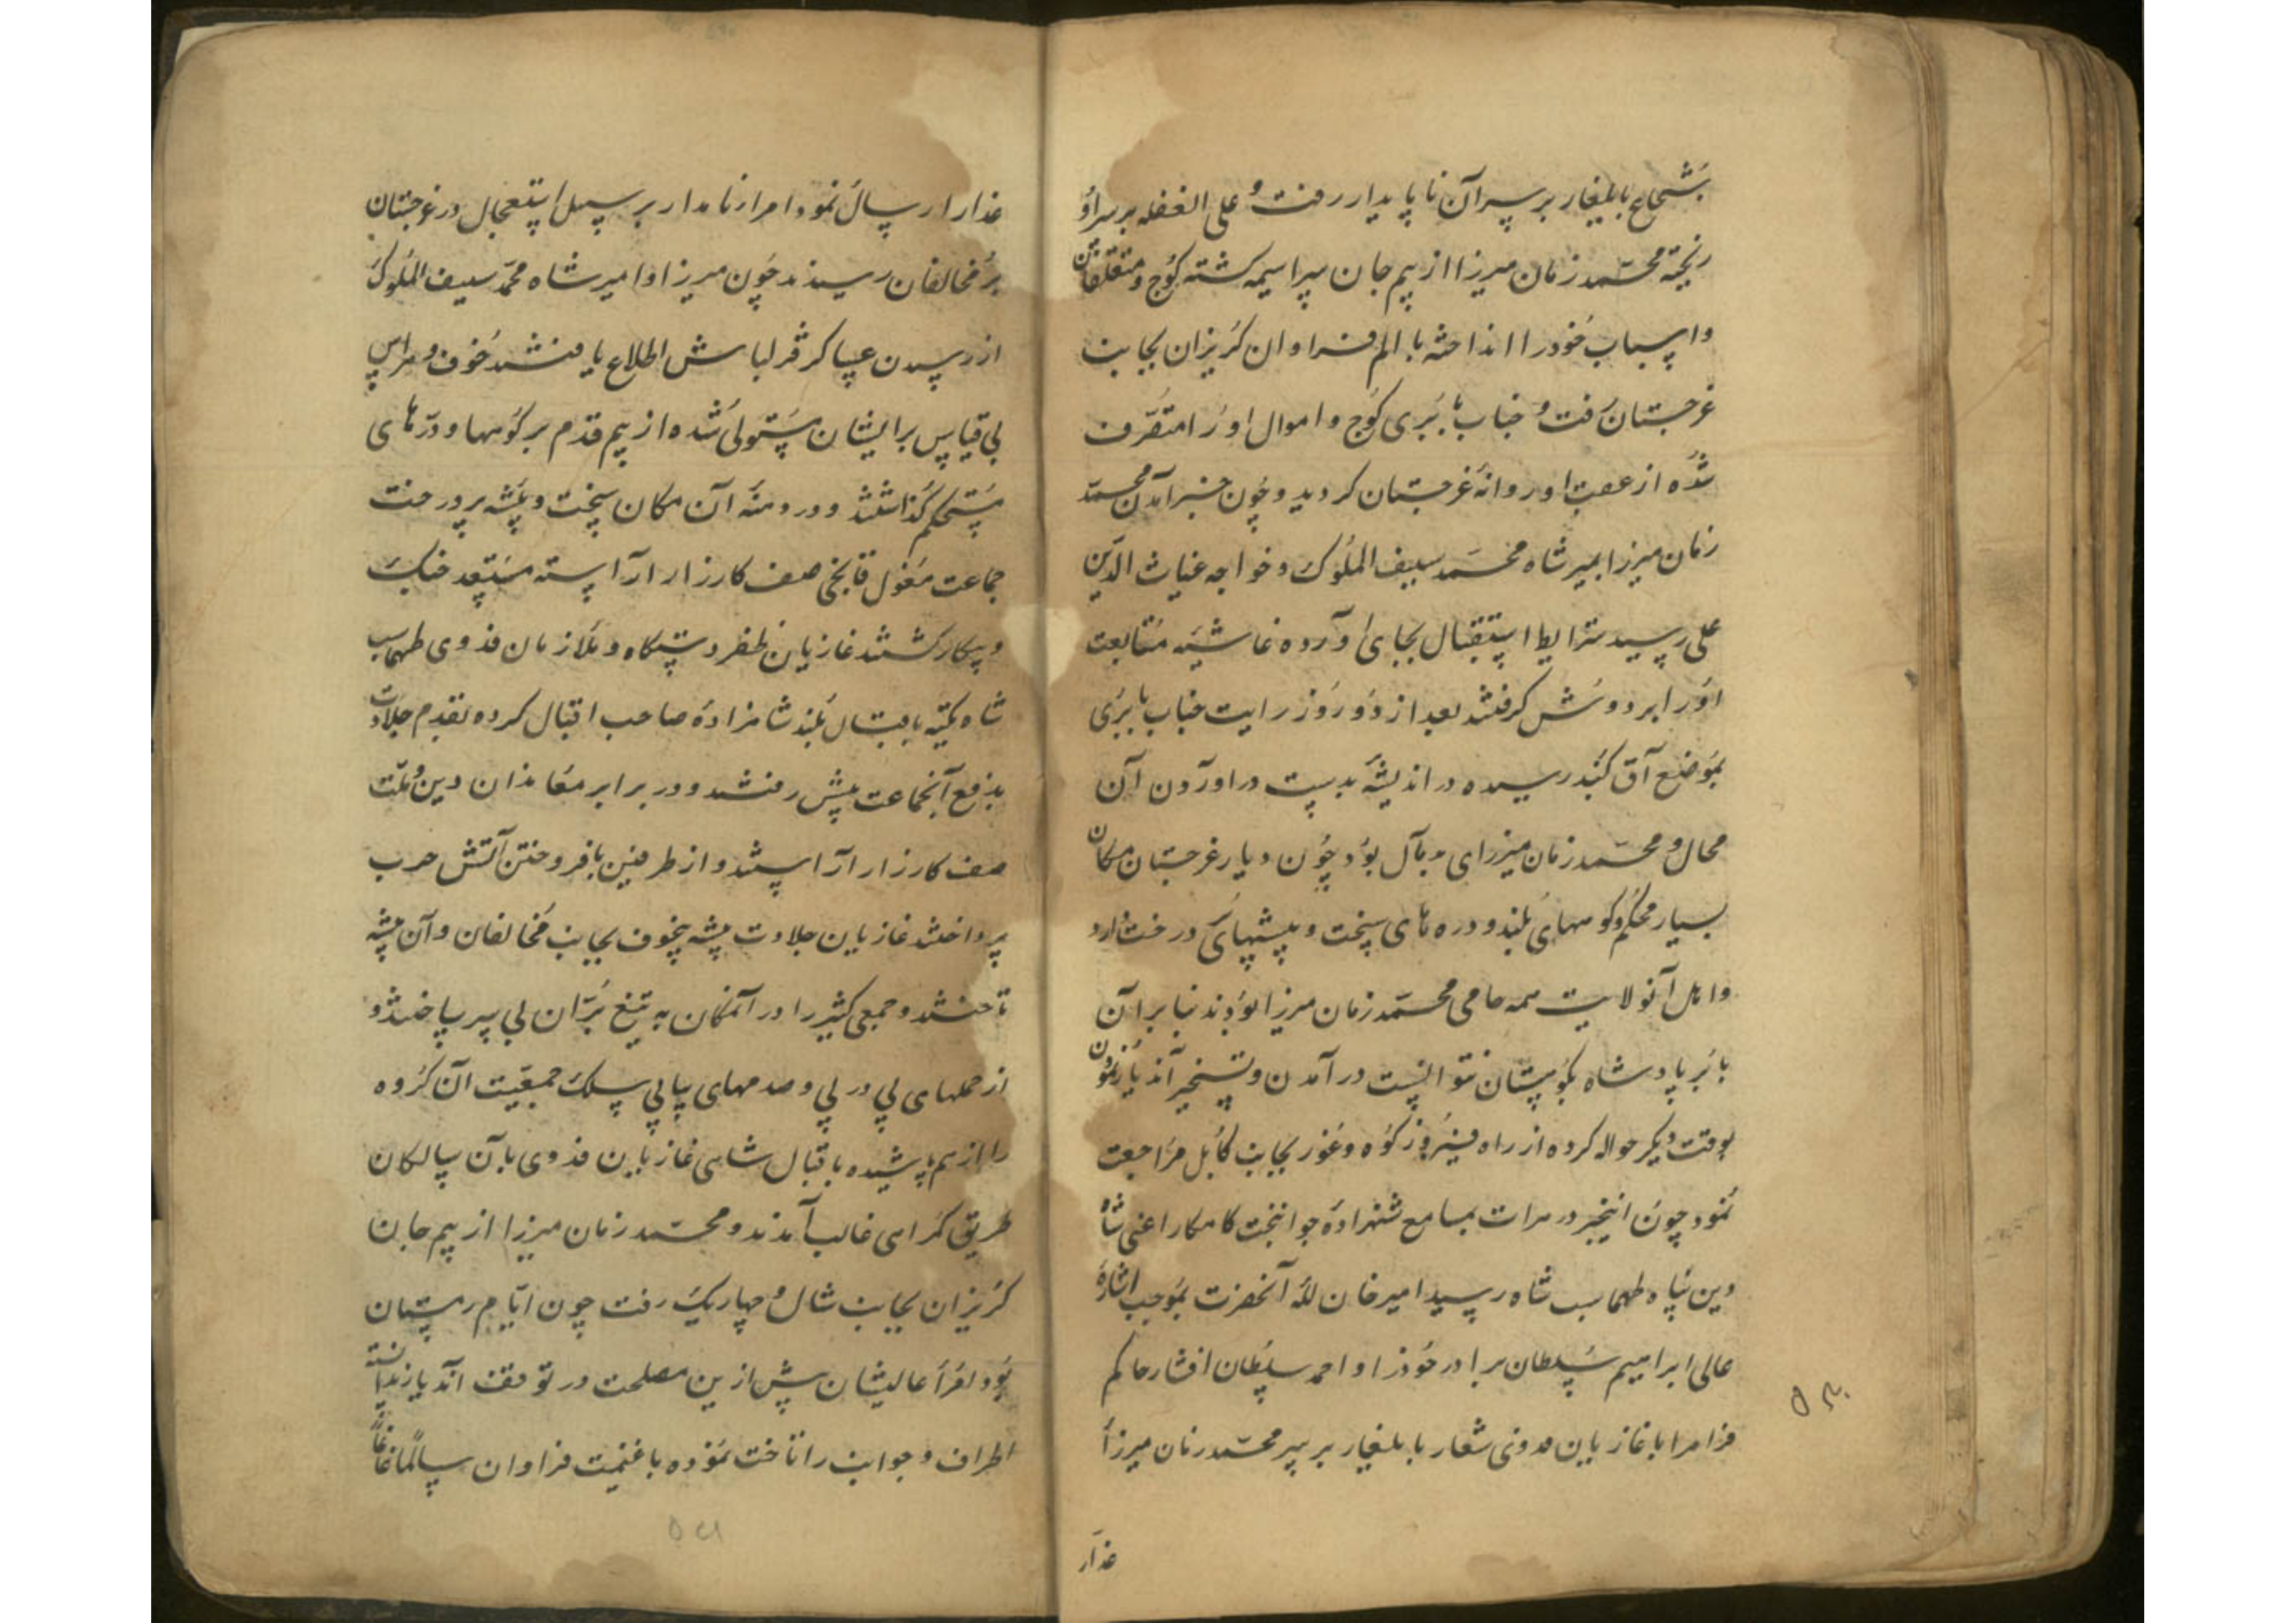 بشجاع بایلغار بر سر آن ناپایدار رفت و علی الغفله بر سر او
ریخته محمد زمان میرزا از بیم جان سراسیمه گشته کوچ و متعلقان
و اسباب خود را انداخته با الم فراوان گریزان بجانب
غرجستان رفت و جناب بابری کوچ و اموال او را متصرف
شده از عقب او روانه غرجستان گردید و چون خبر آمدن محمد
زمان میرزا بمیر شاه محمد سیف الملوک و خواجه غیاث الدین
علی رسید شرایط استقبال بجای آورده غاشیه متابعت
او را بر دوش گرفتند بعد از دو روز رایت جناب بابری
بموضع آق گنبد رسیده در اندیشه بدست در اوردن آن
محال و محمد زمان میرزای و بآل بود چون دیار غرجستان مکان
بسیار محکم و کوههای بلند و دره های سخت و بیشهای درخت دارد
و اهل آنولایت همه حامی محمد زمان میرزا بودند بنابر آن
بابر پادشاه بکوهستان نتوانست در آمدن و تسخیر آندیار نمودن
بوقت دیگر حواله کرده از راه فیروز کوه و غور بجانب کابل مراجعت
نمود چون اینخبر در هرات بمسامع شهزاده جوانبخت کامکار اعنی شاه
دین پناه طهماسب شاه رسید امیر خان لله آنحضرت بموجب اشاره
عالی ابراهیم سلطان برادر خود را و احمد سلطان افشار حاکم
فراه را با غازیان فدوی شعار بایلغار بر سر محمد زمان میرزا
غدار
غدار ارسال نمود امراء نامدار بر سبیل استعجال در غرجستان
بر مخالفان رسیدند چون میرزا و امیر شاه محمد سیف الملوک
از رسیدن عساکر قزلباش اطلاع یافتند خوف و هراس
بی قیاس بر ایشان مستولی شده از بیم قدم بر کوهها و درّهای
مستحکم گذاشتند و در دهنه آن مکان سخت و بیشه پر درخت
جماعت مغول قانجی صف کارزار آراسته مستعد جنگ
و پیکار گشتند غازیان ظفر دستگاه و ملازمان فدوی طهماسب
شاه تکیه باقبال بلند شاهزاده صاحب اقبال کرده بقدم جلادت
بدفع آنجماعت پیش رفتند و در برابر معاندان دین و ملت
صف کارزار آراستند و از طرفین بافروختن آتش حرب
پرداختند غازیان جلادت پیشه بیخوف بجانب مخالفان و آن بیشه
تاختند و جمعی کثیر را در آنمکان به تیغ بران بی سر ساختند و
از حملهای پی در پی و صدمهای پیاپی سلک جمعیت آن گروه
را از هم پاشیده باقبال شاهی غازیان فدوی بآن سالکان
طریق گمراهی غالب آمدند و محمد زمان میرزا از بیم جان
گریزان بجانب شال و چهاریک رفت چون ایام زمستان
بود امراء عالیشان بیش ازین مصلحت در توقف آندیار ندانسته
اطراف و جوانب را تاخت نموده با غنیمت فراوان سالما غانما